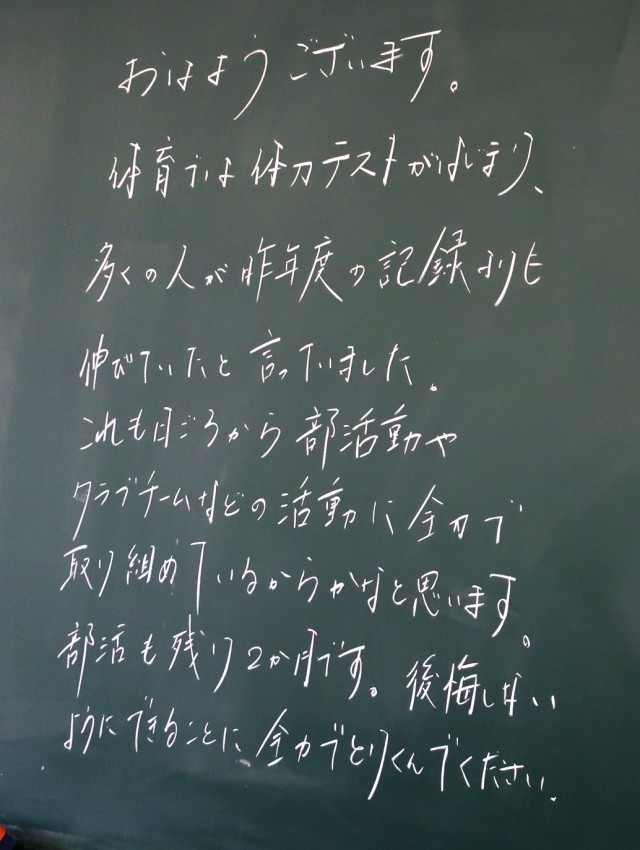 おはようございます。
体育では体力テストがはじまり、
多くの人が昨年度の記録よりも
伸びていたと言っていました。
これも日ごろから部活動や
クラブチームなどの活動に全力で
取り組めているからかなと思います。
部活も残り2か月です。後悔しない
ようにできることに全力でとりくんでください。